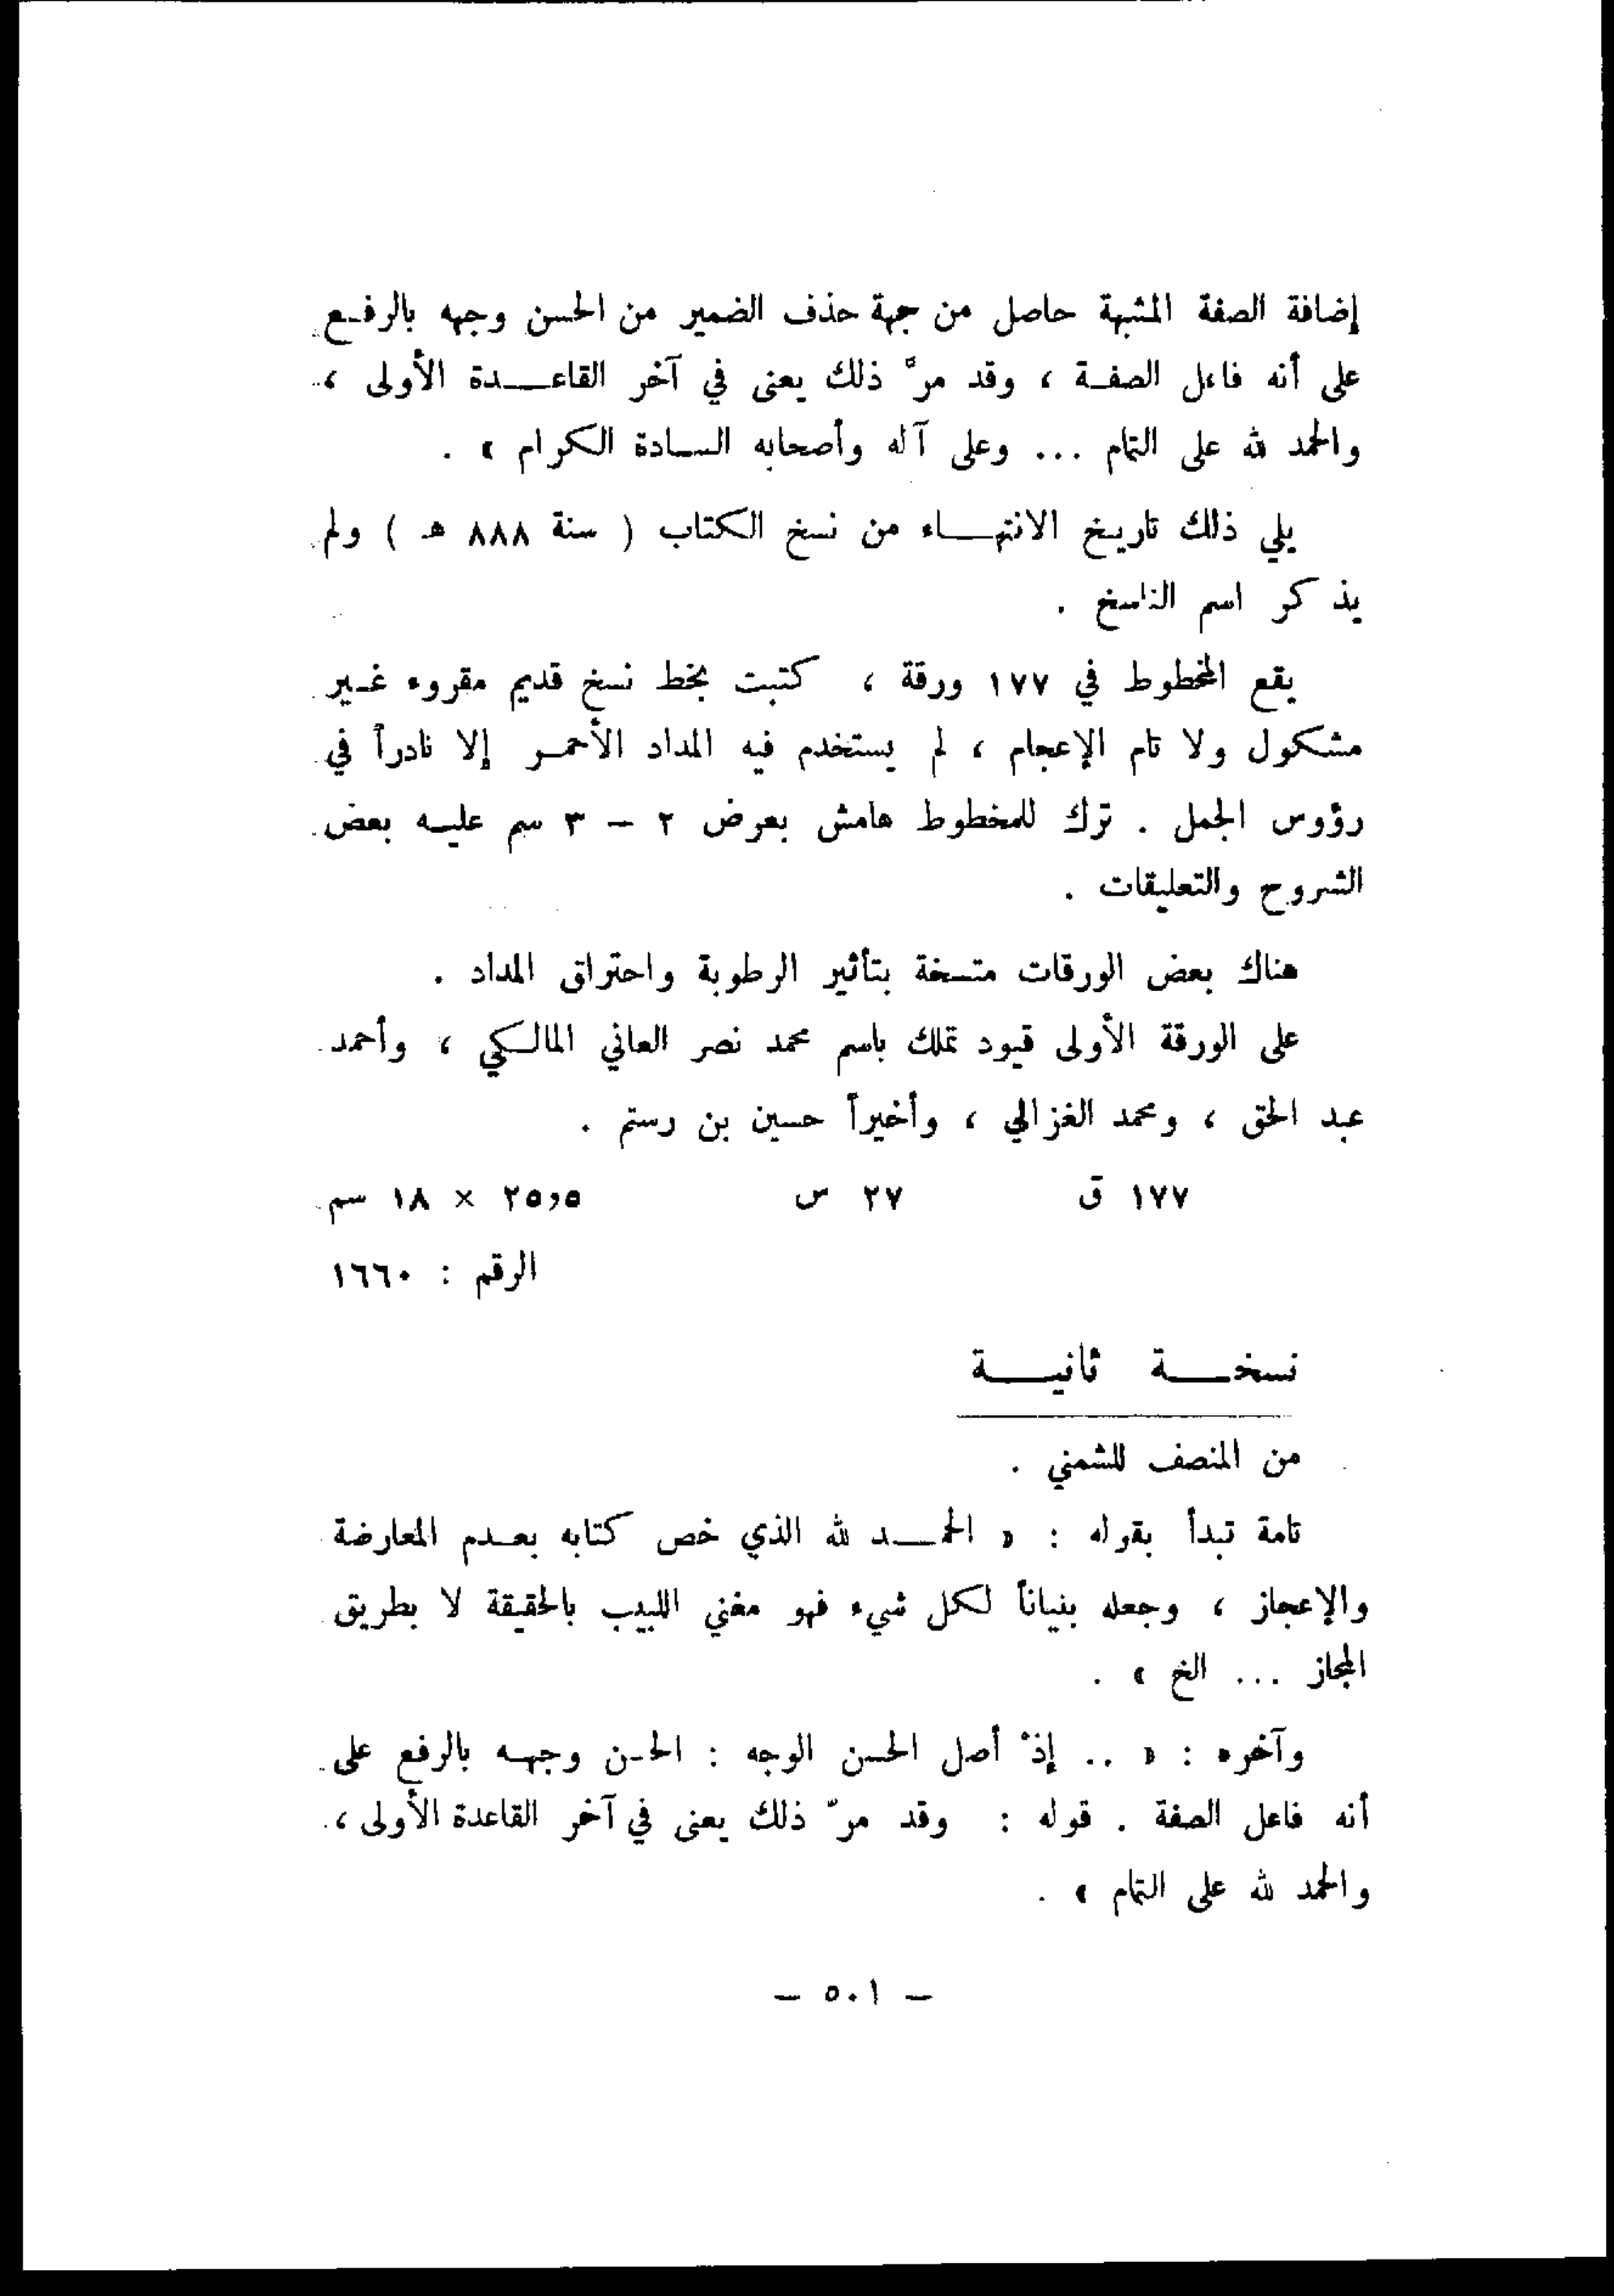 إضافة الصفة المشبهة حاصل من جهة حذف الضمير من الحسن وجهه بالرفع
على أنه فاعل الصفة ، وقد مرّ ذلك يعنى في آخر القاعدة الأولى ،
والحمد لله على التمام ... وعلى آله وأصحابه السادة الكرام » .
يلي ذلك تاريخ الانتهاء من نسخ الكتاب ( سنة ٨٨٨ هـ ) ولم
يذكر اسم الناسخ .
يقع المخطوط في ١٧٧ ورقة ، كتبت بخط نسخ قديم مقروء غير
مشكول ولا تام الإعجام ، لم يستخدم فيه المداد الأحمر إلا نادراً في
رؤوس الجمل . ترك للمخطوط هامش بعرض ٢ – ٣ سم عليه بعض
الشروح والتعليقات .
هناك بعض الورقات متسخة بتأثير الرطوبة واحتراق المداد .
على الورقة الأولى قيود تملك باسم محمد نصر العاني المالكي ، وأحمد
عبد الحق ، ومحمد الغزالي ، وأخيراً حسين بن رستم .
١٧٧ ق ٢٧ س ٢٥,٥ × ١٨ سم
الرقم : ١٦٦٠
نسخة ثانية
من المنصف للشمني .
تامة تبدأ بقوله : « الحمد لله الذي خص كتابه بعدم المعارضة
والإعجاز ، وجعله بنياناً لكل شيء فهو مغني اللبيب بالحقيقة لا بطريق
المجاز ... الخ » .
وآخره : « .. إذْ أصل الحسن الوجه : الحسن وجهه بالرفع على
أنه فاعل الصفة . قوله : وقد مرّ ذلك يعنى في آخر القاعدة الأولى ،
والحمد لله على التمام » .
– ٥٠١ –